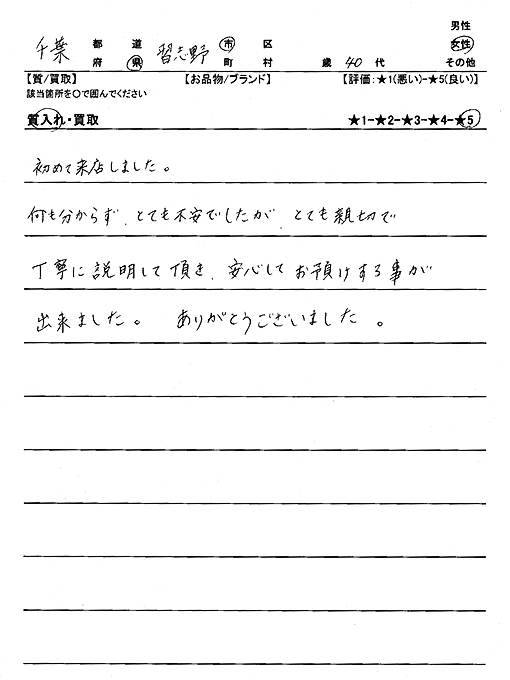 男性
千葉 都道府県 習志野 市区町村 歳 40代 女性
その他
【質/買取】 【お品物/ブランド】 【評価:★1(悪い)-★5(良い)】
該当箇所を〇で囲んでください
質入れ・買取 ★1-★2-★3-★4-★5
初めて来店しました。
何も分からず、とても不安でしたが、とても親切で
丁寧に説明して頂き、安心してお預けする事が
出来ました。 ありがとうございました。